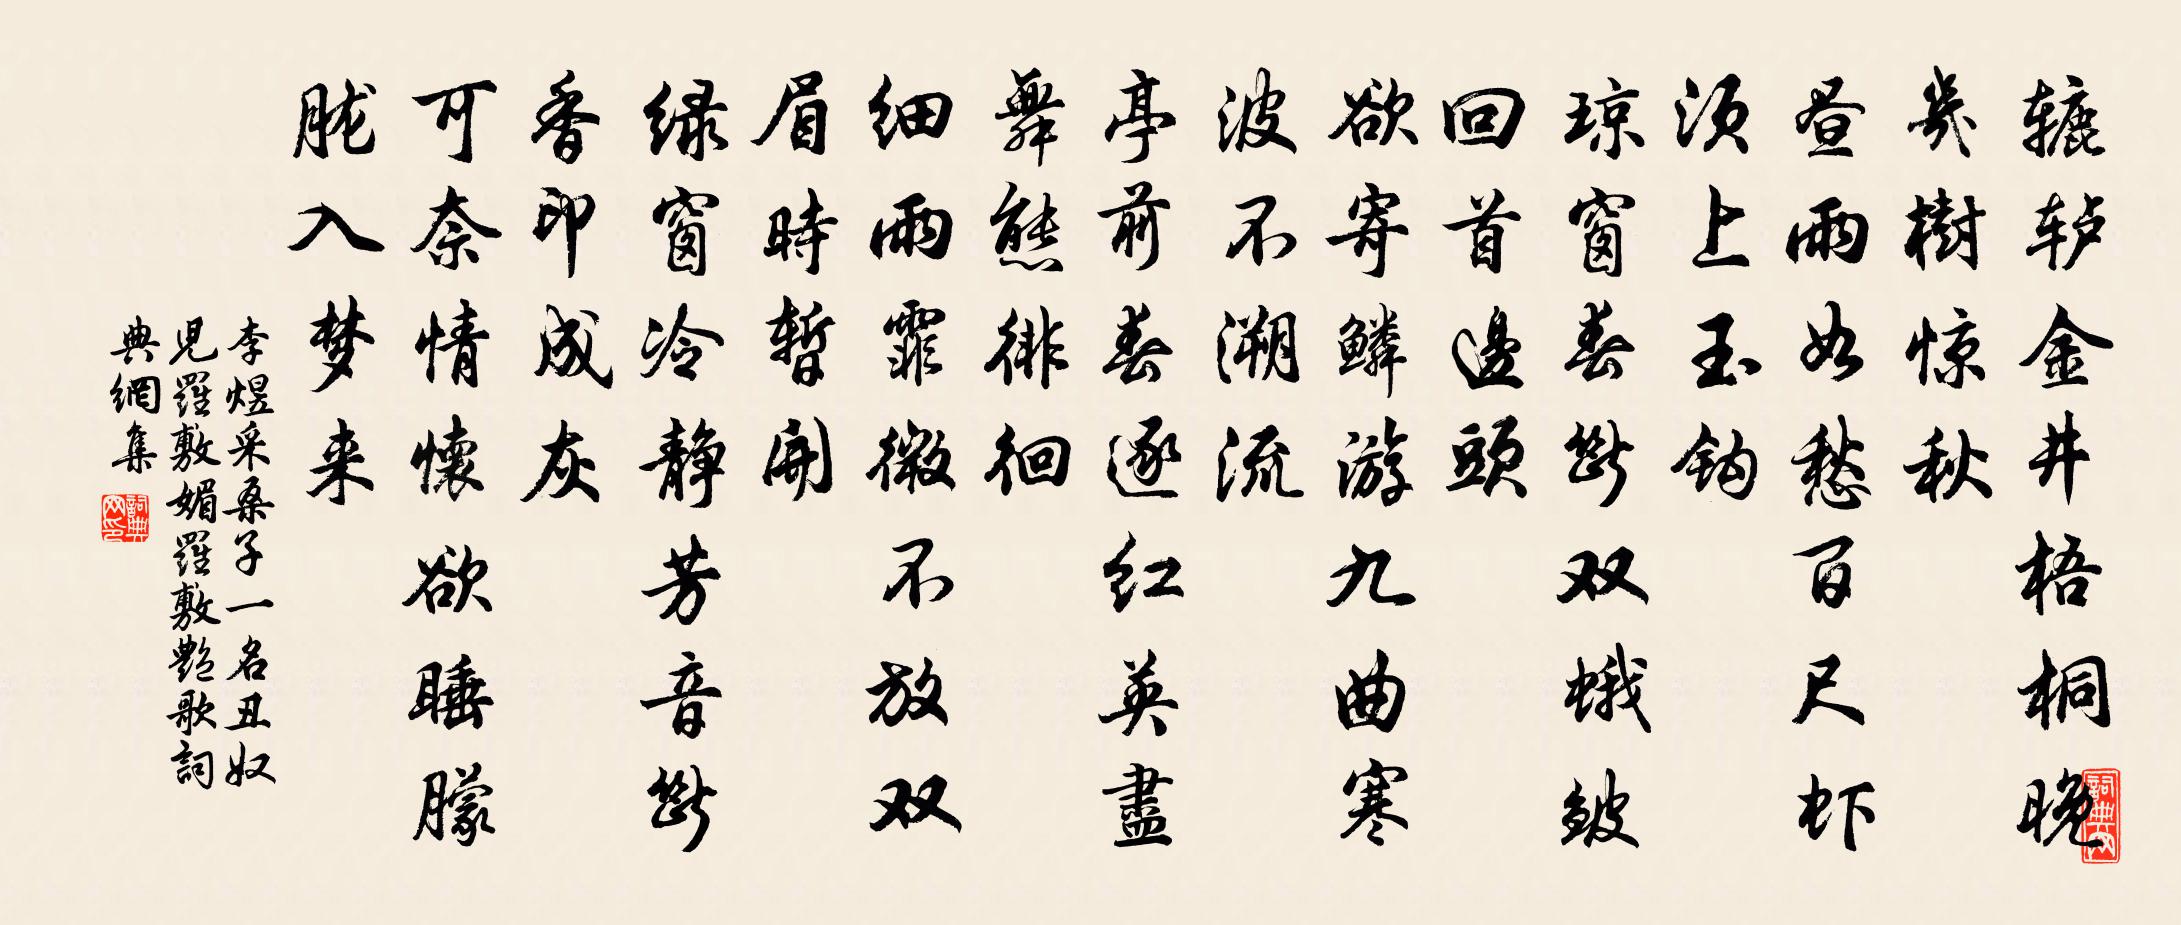 辘轳金井梧桐晚
幾樹惊秋
昼雨如愁百尺虾
须上玉钩
琼窗春断双蛾皱
回首邊頭
欲寄鳞游九曲寒
波不溯流
亭前春逐红英盡
舞態徘徊
细雨霏微不放双
眉時暫開
绿窗冷静芳音断
香印成灰
可奈情懷欲睡朦
胧入梦来
李煜采桑子一名丑奴
児羅敷媚羅敷艷歌詞
典網集